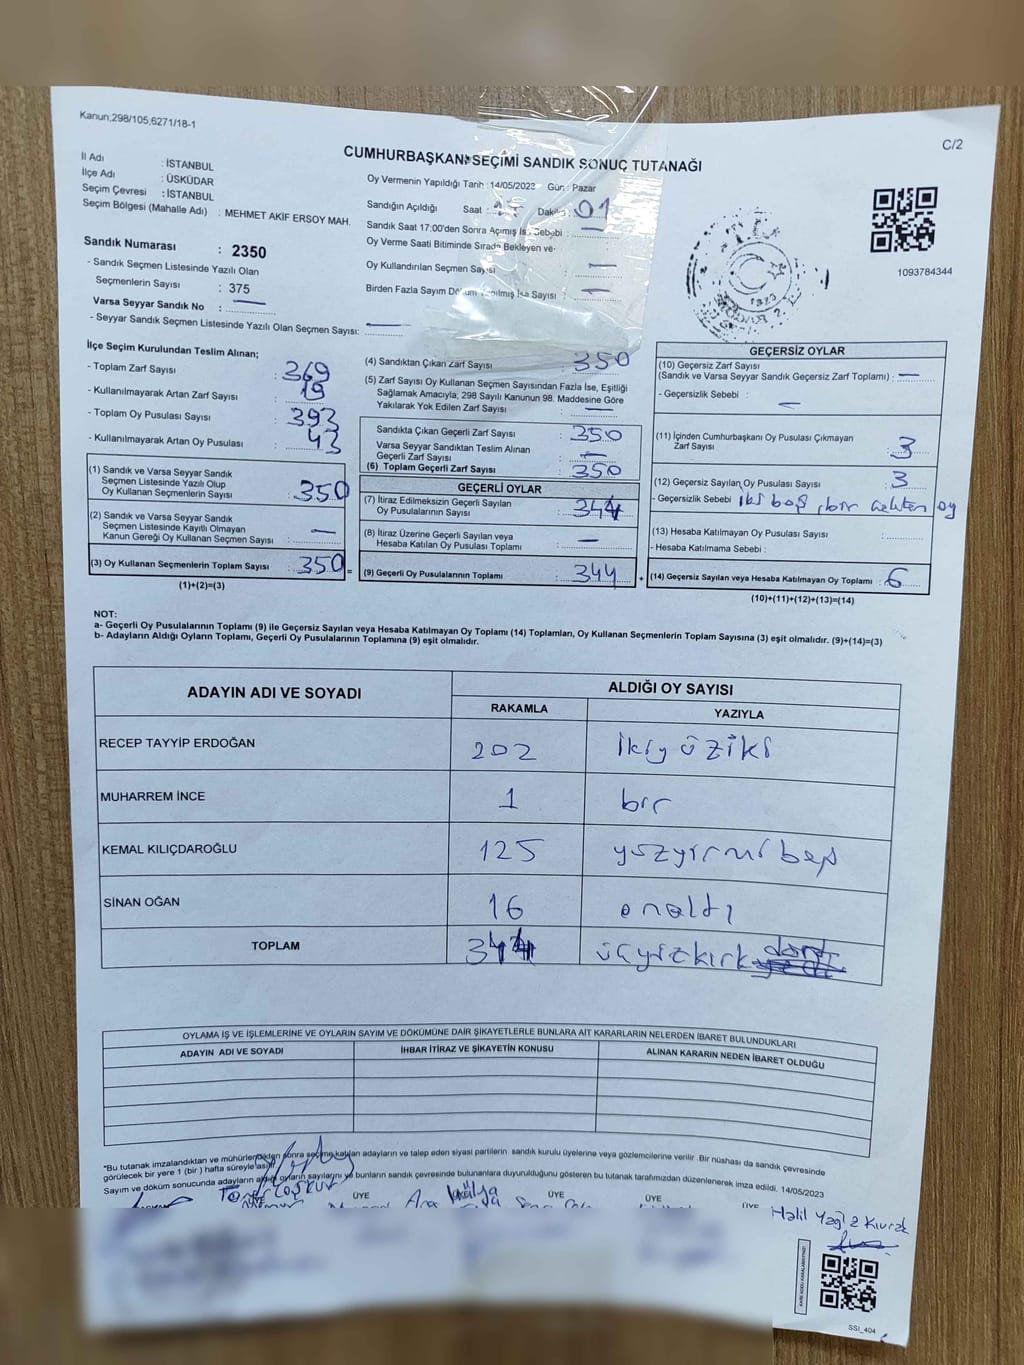 Kanun;298/105,6271/18-1
C/2
CUMHURBAŞKANI SEÇİMİ SANDIK SONUÇ TUTANAĞI
İl Adı : İSTANBUL
İlçe Adı : ÜSKÜDAR
Seçim Çevresi : İSTANBUL
Seçim Bölgesi (Mahalle Adı) : MEHMET AKİF ERSOY MAH.
Sandık Numarası : 2350
- Sandık Seçmen Listesinde Yazılı Olan
Seçmenlerin Sayısı : 375
Varsa Seyyar Sandık No : —
- Seyyar Sandık Seçmen Listesinde Yazılı Olan Seçmen Sayısı: —
Oy Vermenin Yapıldığı Tarih : 14/05/2023 Gün : Pazar
Sandığın Açıldığı Saat : 17 Dakika : 01
Sandık Saat 17:00'den Sonra Açılmış İse Sebebi : —
Oy Verme Saati Bitiminde Sırada Bekleyen ve
Oy Kullandırılan Seçmen Sayısı : —
Birden Fazla Sayım Döküm Yapılmış İse Sayısı : —
1093784344
İlçe Seçim Kurulundan Teslim Alınan;
- Toplam Zarf Sayısı : 369
- Kullanılmayarak Artan Zarf Sayısı : 19
- Toplam Oy Pusulası Sayısı : 393
- Kullanılmayarak Artan Oy Pusulası : 43
(1) Sandık ve Varsa Seyyar Sandık
Seçmen Listesinde Yazılı Olup
Oy Kullanan Seçmenlerin Sayısı : 350
(2) Sandık ve Varsa Seyyar Sandık
Seçmen Listesinde Kayıtlı Olmayan
Kanun Gereği Oy Kullanan Seçmen Sayısı : —
(3) Oy Kullanan Seçmenlerin Toplam Sayısı : 350 =
(1)+(2)=(3)
(4) Sandıktan Çıkan Zarf Sayısı : 350
(5) Zarf Sayısı Oy Kullanan Seçmen Sayısından Fazla İse, Eşitliği
Sağlamak Amacıyla; 298 Sayılı Kanunun 98. Maddesine Göre
Yakılarak Yok Edilen Zarf Sayısı : —
Sandıkta Çıkan Geçerli Zarf Sayısı : 350
Varsa Seyyar Sandıktan Teslim Alınan
Geçerli Zarf Sayısı : —
(6) Toplam Geçerli Zarf Sayısı : 350
GEÇERLİ OYLAR
(7) İtiraz Edilmeksizin Geçerli Sayılan
Oy Pusulalarının Sayısı : 344
(8) İtiraz Üzerine Geçerli Sayılan veya
Hesaba Katılan Oy Pusulası Toplamı : —
(9) Geçerli Oy Pusulalarının Toplamı : 344 +
GEÇERSİZ OYLAR
(10) Geçersiz Zarf Sayısı
(Sandık ve Varsa Seyyar Sandık Geçersiz Zarf Toplamı) : —
- Geçersizlik Sebebi : —
(11) İçinden Cumhurbaşkanı Oy Pusulası Çıkmayan
Zarf Sayısı : 3
(12) Geçersiz Sayılan Oy Pusulası Sayısı : 3
- Geçersizlik Sebebi : iki boş, bir oy
(13) Hesaba Katılmayan Oy Pusulası Sayısı :
- Hesaba Katılmama Sebebi :
(14) Geçersiz Sayılan veya Hesaba Katılmayan Oy Toplamı : 6
(10)+(11)+(12)+(13)=(14)
NOT:
a- Geçerli Oy Pusulalarının Toplamı (9) ile Geçersiz Sayılan veya Hesaba Katılmayan Oy Toplamı (14) Toplamları, Oy Kullanan Seçmenlerin Toplam Sayısına (3) eşit olmalıdır. (9)+(14)=(3)
b- Adayların Aldığı Oyların Toplamı, Geçerli Oy Pusulalarının Toplamına (9) eşit olmalıdır.
ADAYIN ADI VE SOYADI ALDIĞI OY SAYISI
RAKAMLA YAZIYLA
RECEP TAYYİP ERDOĞAN 202 ikiyüziki
MUHARREM İNCE 1 bir
KEMAL KILIÇDAROĞLU 125 yüzyirmibeş
SİNAN OĞAN 16 onaltı
TOPLAM 344 üçyüzkırkdört
OYLAMA İŞ VE İŞLEMLERİNE VE OYLARIN SAYIM VE DÖKÜMÜNE DAİR ŞİKAYETLERLE BUNLARA AİT KARARLARIN NELERDEN İBARET BULUNDUKLARI
ADAYIN ADI VE SOYADI İHBAR İTİRAZ VE ŞİKAYETİN KONUSU ALINAN KARARIN NEDEN İBARET OLDUĞU
*Bu tutanak imzalandıktan ve mühürlendikten sonra seçime katılan adayların ve talep eden siyasi partilerin sandık kurulu üyelerine veya gözlemcilerine verilir .Bir nüshası da sandık çevresinde
görülecek bir yere 1 (bir ) hafta süreyle asılır.
Sayım ve döküm sonucunda adayların aldığı oyların sayılarını ve bunların sandık çevresinde bulunanlara duyurulduğunu gösteren bu tutanak tarafımızdan düzenlenerek imza edildi. 14/05/2023
ÜYE ÜYE ÜYE ÜYE ÜYE
Halil Yağız Kıvrak
SSİ_404